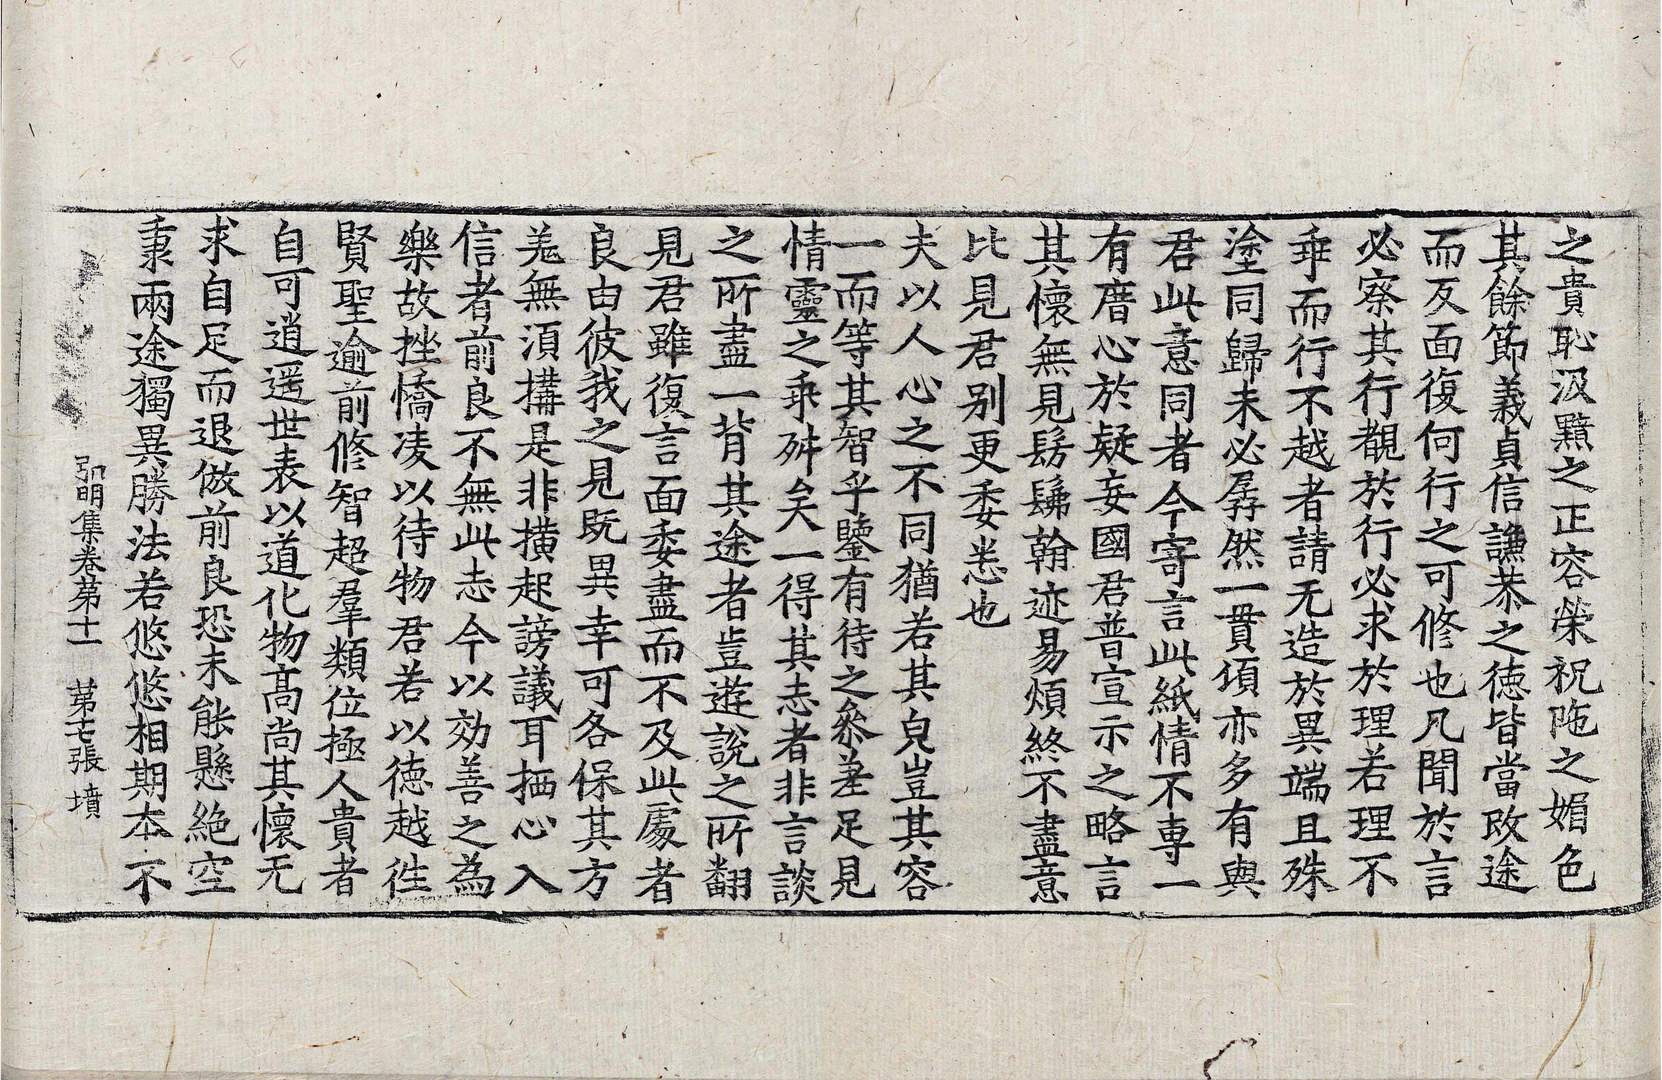 之貴恥汲黯之正容榮祝陁之媚色
其餘節義貞信謙恭之徳皆當改途
而反面復何行之可修也凡聞於言
必察其行覩於行必求於理若理不
乖而行不越者請无造於異端且殊
塗同歸未必孱然一貫頃亦多有與
君此意同者今寄言此紙情不專一
有厝心於疑妄國君普宣示之略言
其懷無見髣髴翰迹易煩終不盡意
比見君別更委悉也
夫以人心之不同猶若其皃豈其容
一而等其智乎鑒有待之參差足見
情靈之乖舛矣一得其志者非言談
之所盡一背其途者豈遊說之所翻
見君雖復言面委盡而不及此處者
良由彼我之見既異幸可各保其方
羗無湏搆是非橫起謗議耳栖心入
信者前良不無此志今以効善之為
樂故挫憍凌以待物君若以徳越徃
賢聖逾前修智超羣類位極人貴者
自可逍遥世表以道化物高尚其懷无
求自足而退倣前良恐未能懸絶空
秉兩途獨異勝法若悠悠相期本不
弘明集卷第十一　第七張　墳